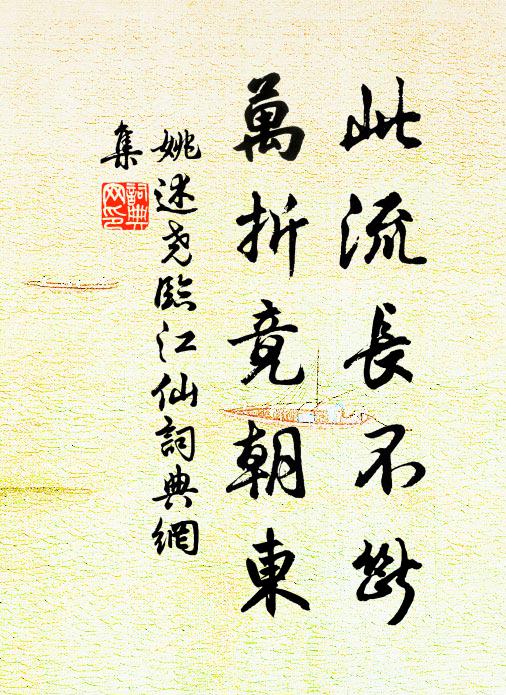 此流長不斷
萬折竟朝東
姚述尧臨江仙詞典網
集
詞典
网印